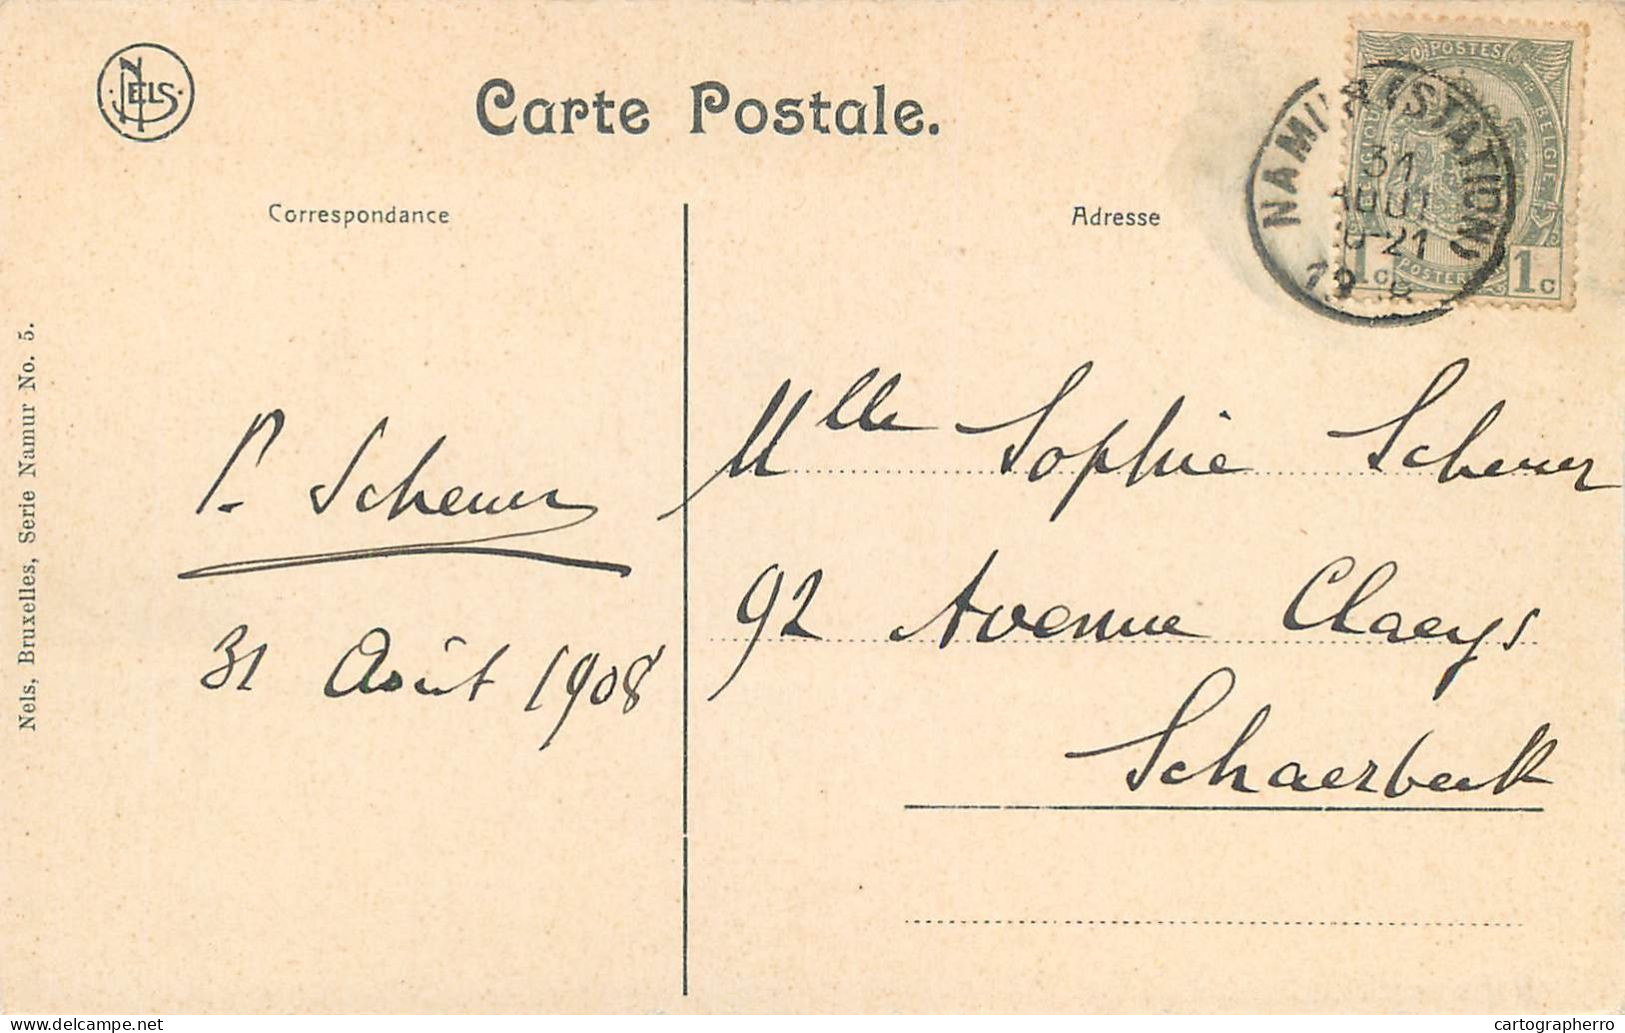 NELS
Carte Postale.
Correspondance
Adresse
POSTES
BELGIE
POSTERIJEN
1c 1c
NAMUR (STATION)
31
AOUT
20-21
1908
Nels, Bruxelles, Serie Namur No. 5.
P. Scheuer
31 Août 1908
Mlle Sophie Scheuer
92 Avenue Claeys
Schaerbeek
cartographerro